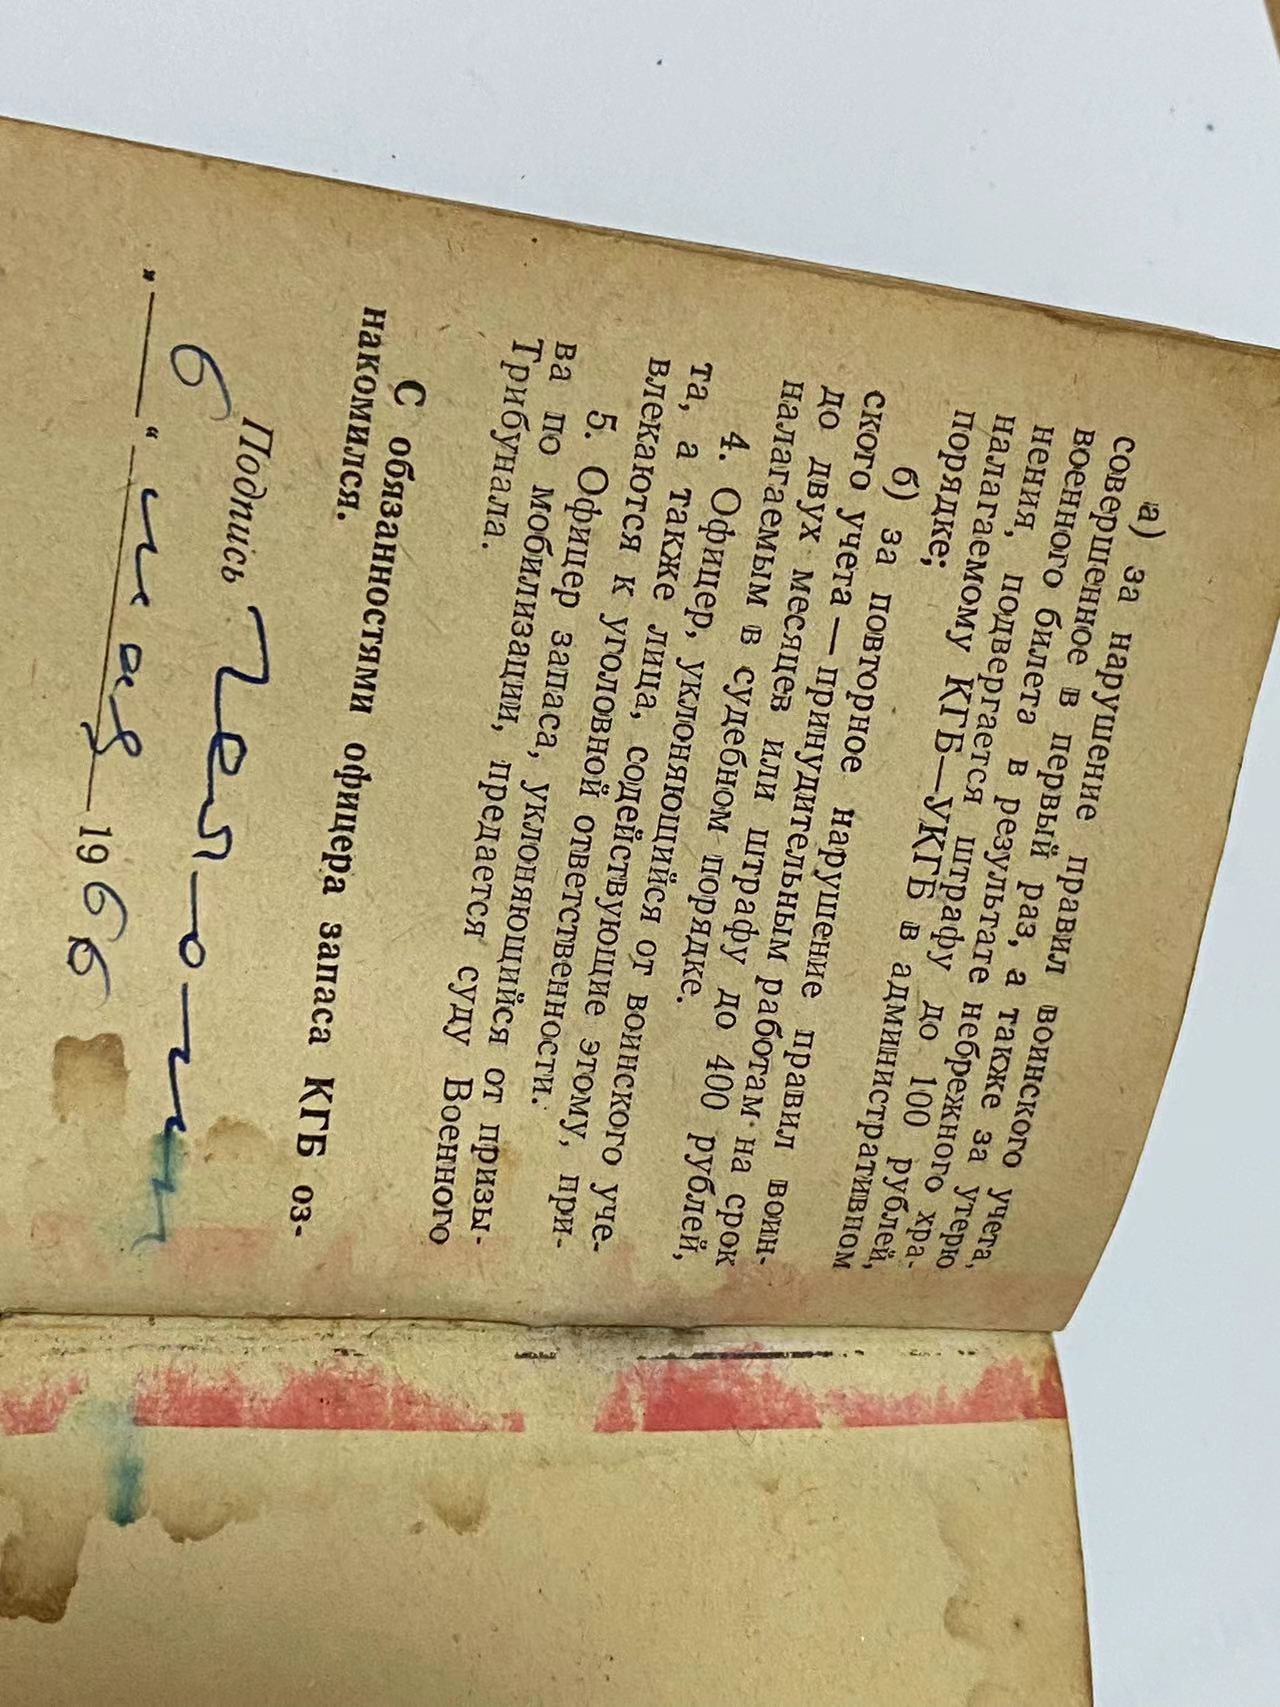 а) за нарушение правил воинского учета,
совершенное в первый раз, а также за утерю
военного билета в результате небрежного хра-
нения, подвергается штрафу до 100 рублей,
налагаемому КГБ—УКГБ в административном
порядке;
б) за повторное нарушение правил воин-
ского учета — принудительным работам на срок
до двух месяцев или штрафу до 400 рублей,
налагаемым в судебном порядке.
4. Офицер, уклоняющийся от воинского уче-
та, а также лица, содействующие этому, при-
влекаются к уголовной ответственности.
5. Офицер запаса, уклоняющийся от призы-
ва по мобилизации, предается суду Военного
Трибунала.
С обязанностями офицера запаса КГБ оз-
накомился.
Подпись
„ 6 “ мая 1966